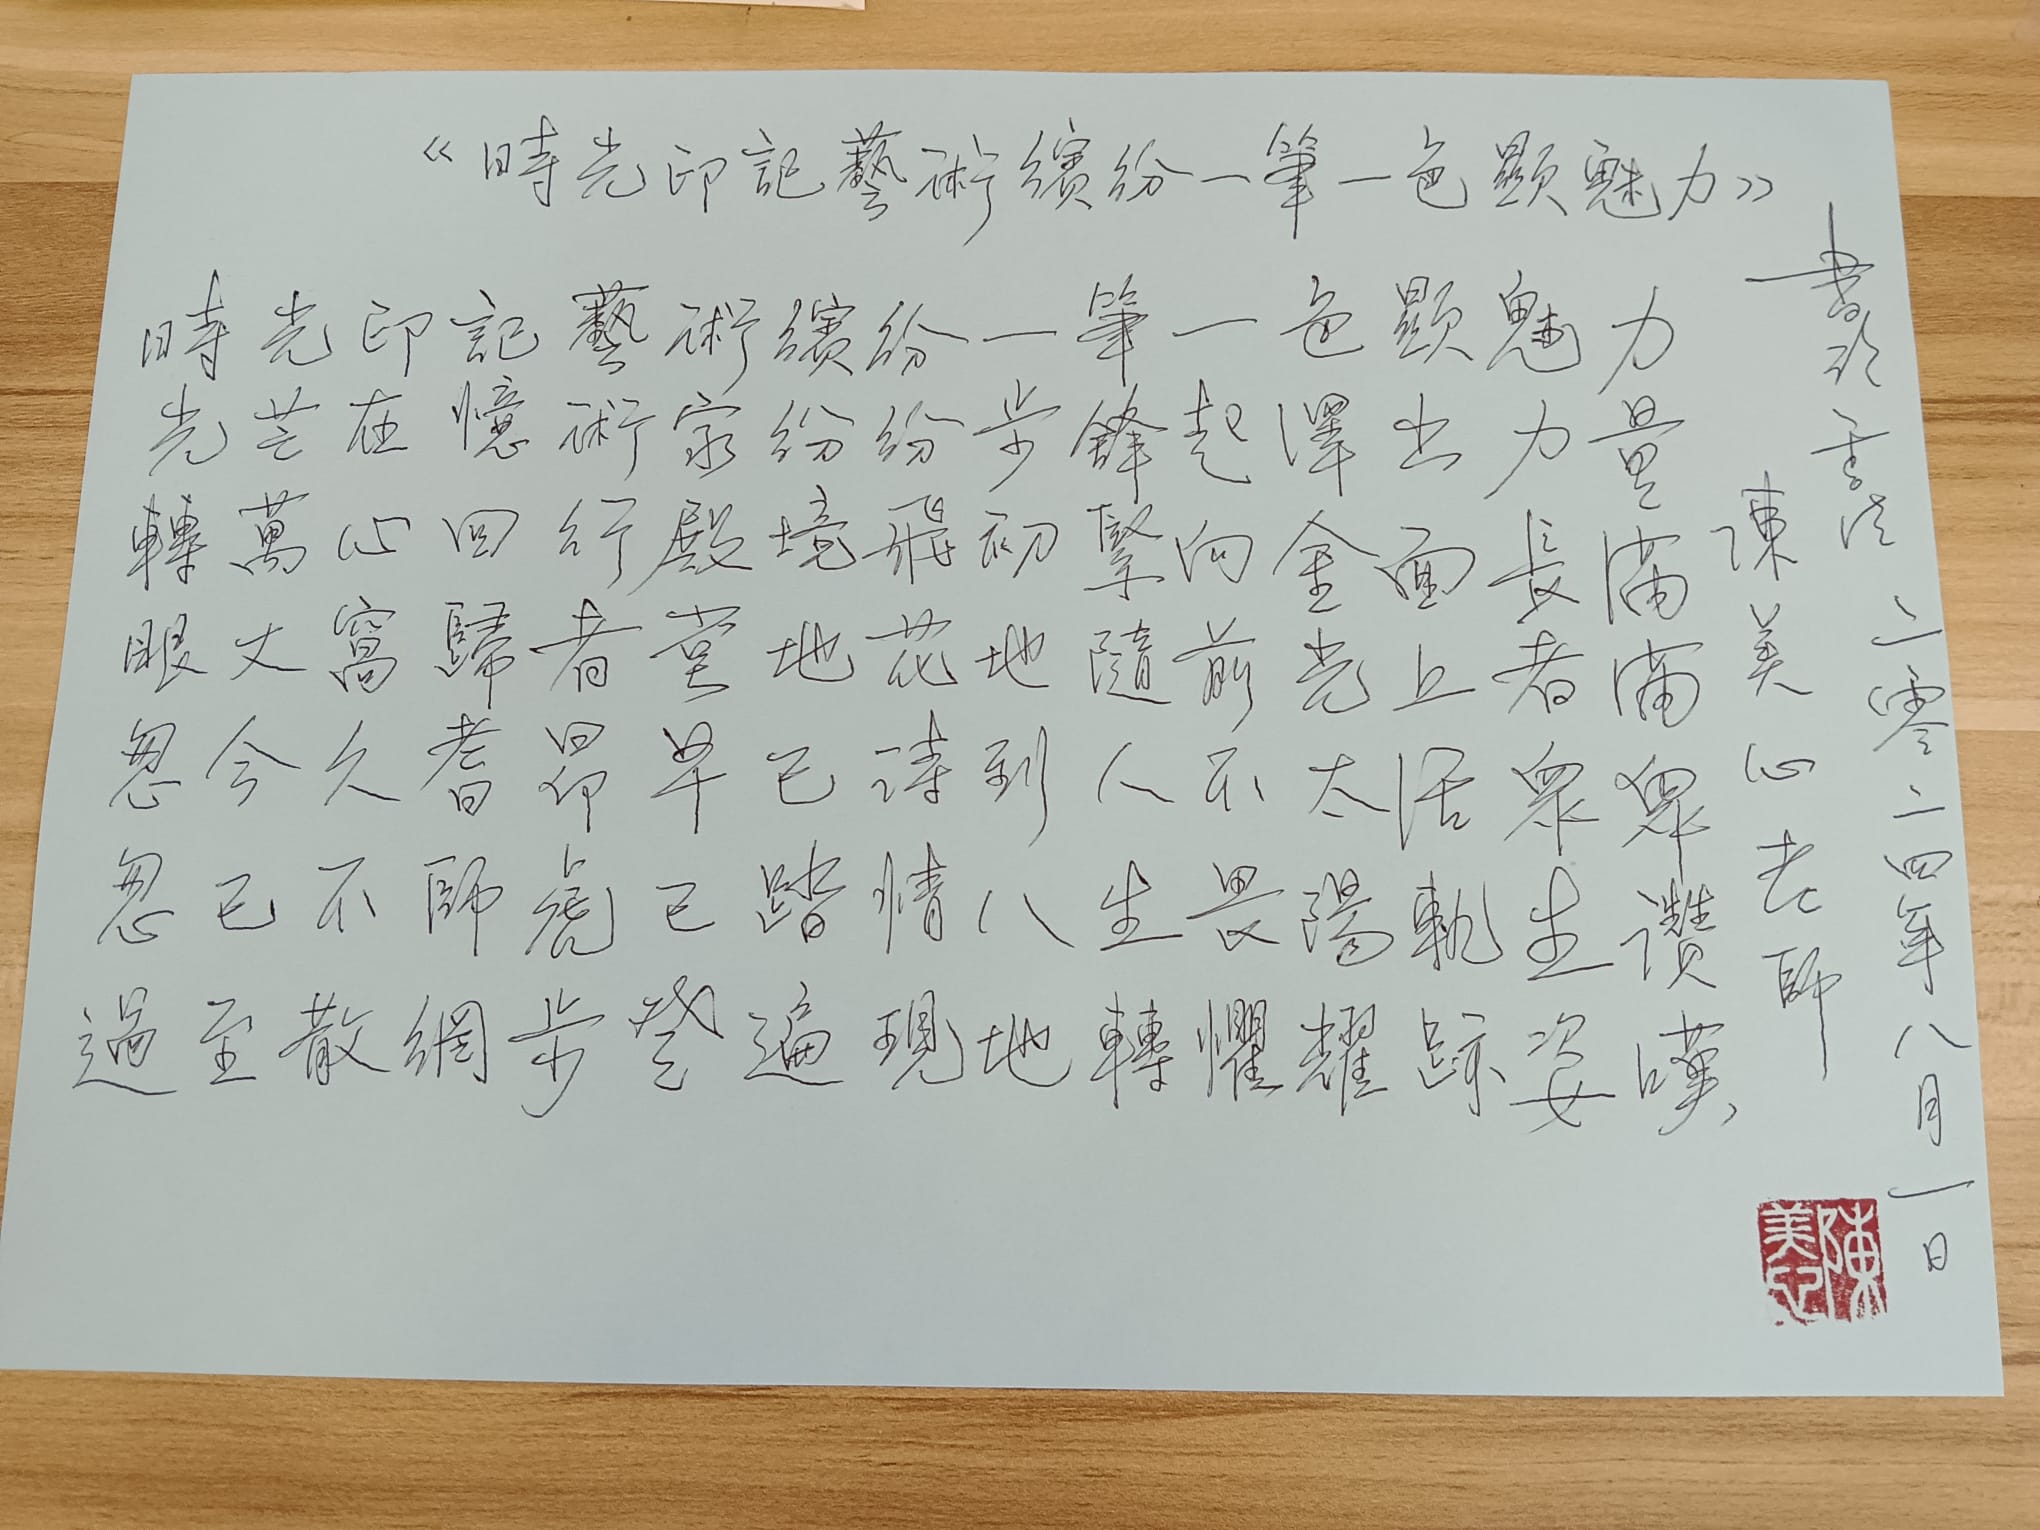 《時光印記藝術繽紛一筆一色顯魅力》
時光轉眼忽忽過
光芒萬丈今已至
印在心窩久不散
記憶回歸耆師網
藝術行者昂虎步
術家殿堂早已登
繽紛境地已踏遍
紛紛飛花詩情現
一步初地到八地
筆鋒緊隨人生轉
一起向前不畏懼
色澤金光太陽耀
顯出面上活軌跡
魅力長者眾生姿
力量滿滿眾讚嘆
書於香港
陳美心老師
二零二四年八月一日
陳美心